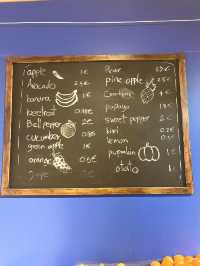 apple 1€
Avocado 2.5€
banana 1€
beetroot
Bell pepper 2€
cucumber
green apple 1€
orange 0.5€
Pear
pine apple 2.5€
4€
papaya
sweet pepper 2€
kiwi 0.2€
lemon 0.5€
pumpkin 1€
potato 1